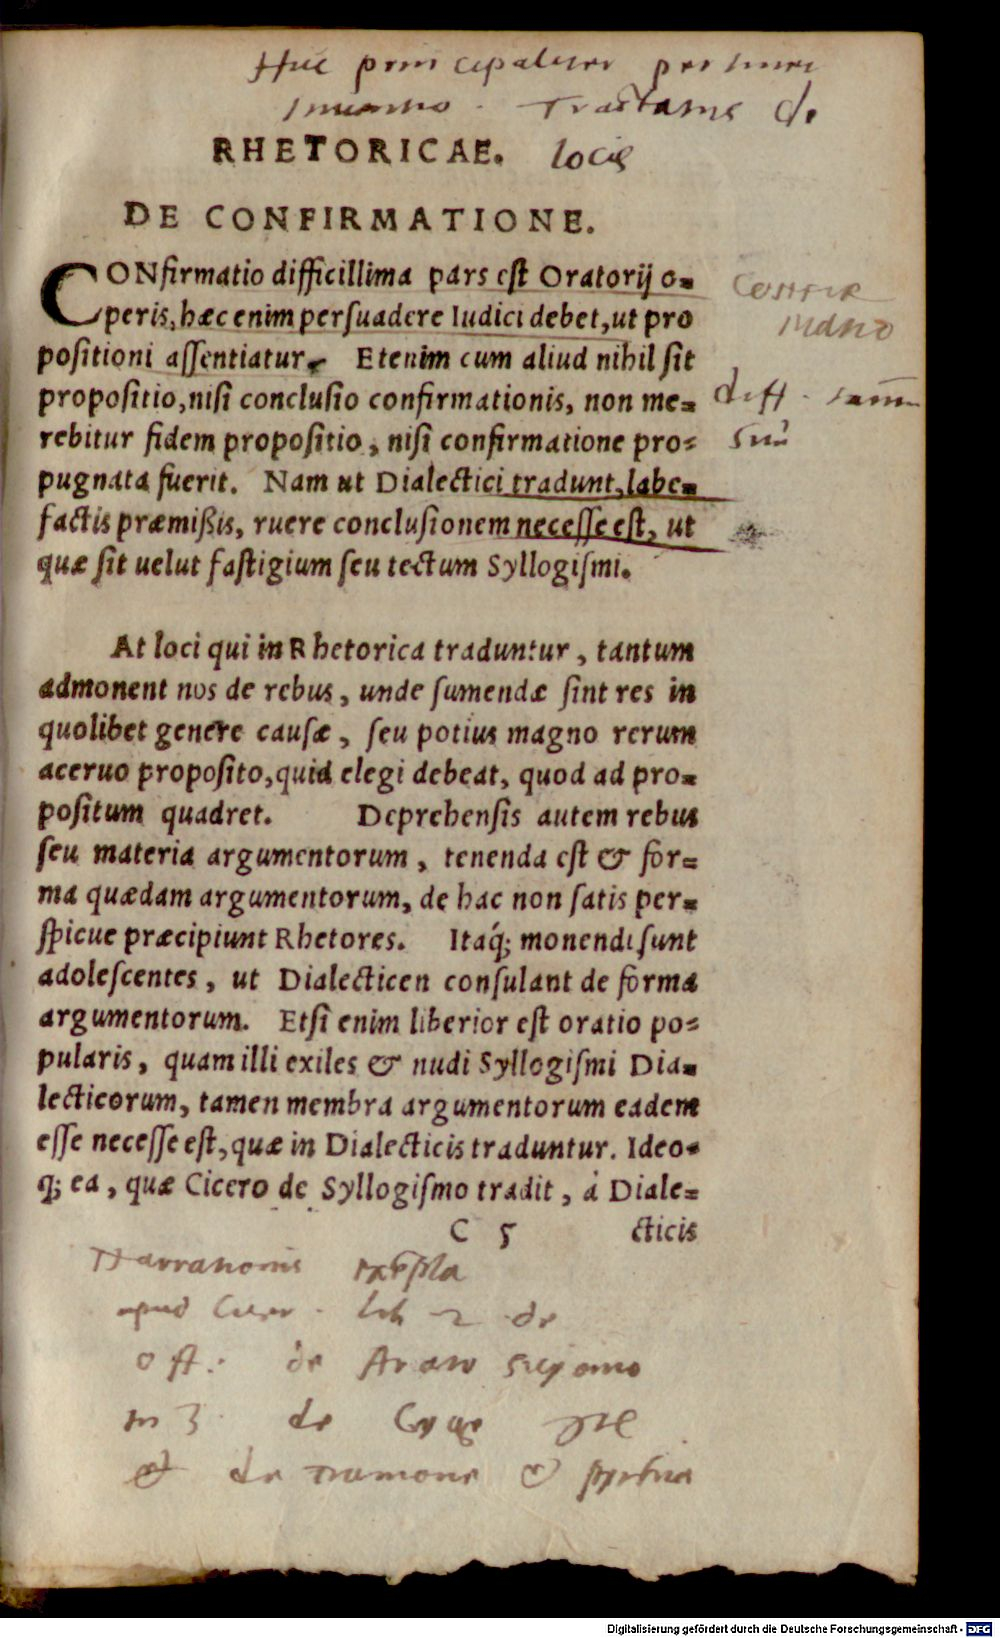 Huc principaliter pertinet
inuentio. Tractatus de
locis
RHETORICAE.
DE CONFIRMATIONE.
CONfirmatio difficillima pars est Oratorij o-
peris, hæc enim persuadere Iudici debet, ut pro
positioni assentiatur. Etenim cum aliud nihil sit
propositio, nisi conclusio confirmationis, non me-
rebitur fidem propositio, nisi confirmatione pro-
pugnata fuerit. Nam ut Dialectici tradunt, labe-
factis præmißis, ruere conclusionem necesse est, ut
quæ sit uelut fastigium seu tectum Syllogismi.
Confir
matio
At loci qui in Rhetorica traduntur, tantum
admonent nos de rebus, unde sumendæ sint res in
quolibet genere causæ, seu potius magno rerum
aceruo proposito, quid elegi debeat, quod ad pro-
positum quadret. Deprehensis autem rebus
seu materia argumentorum, tenenda est & for-
ma quædam argumentorum, de hac non satis per-
spicue præcipiunt Rhetores. Itaq́; monendi sunt
adolescentes, ut Dialecticen consulant de forma
argumentorum. Etsi enim liberior est oratio po-
pularis, quam illi exiles & nudi Syllogismi Dia-
lecticorum, tamen membra argumentorum eadem
esse necesse est, quæ in Dialecticis traduntur. Ideo-
q́; ea, quæ Cicero de Syllogismo tradit, à Diale-
C 5 cticis
Narrationis exempla
apud Cicer. lib 2 de
off. de Arato Sicyonio
in 3 de Gyge
& de &
Digitalisierung gefördert durch die Deutsche Forschungsgemeinschaft - DFG